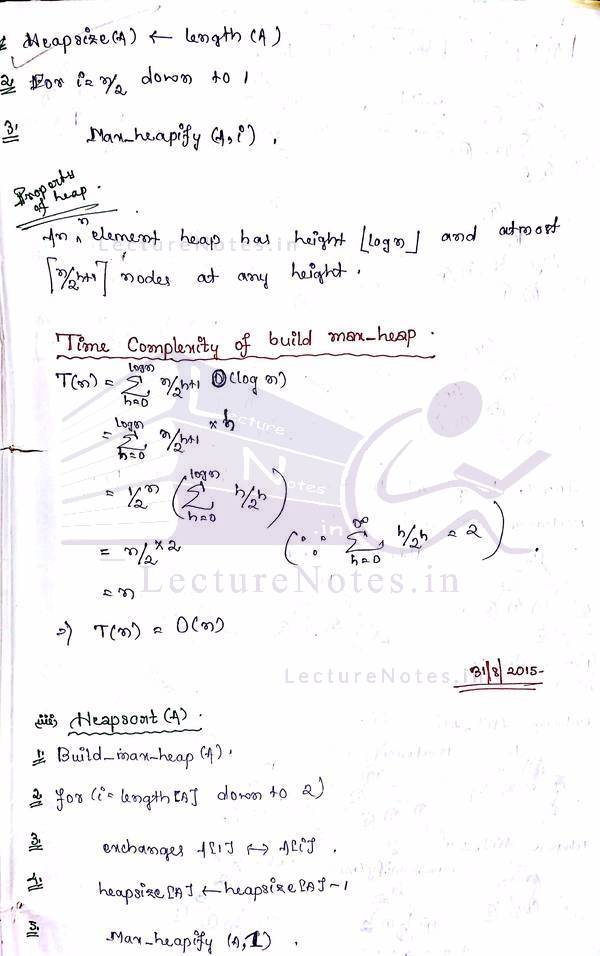 1. Heapsize(A) ← length(A)
2. For i = n/2 down to 1
3. Max_heapify (A, i).
Property of heap.
An n element heap has height ⌊log n⌋ and atmost
⌈n/2^(h+1)⌉ nodes at any height.
LectureNotes.in
Time Complexity of build max-heap.
T(n) = Σ_{h=0}^{log n} n/2^(h+1) O(log n)
= Σ_{h=0}^{log n} n/2^(h+1) × h
Lecture
= 1/2 n ( Σ_{h=0}^{log n} h/2^h )
Notes
.in
= n/2 × 2 (∵ Σ_{h=0}^{∞} h/2^h = 2).
= n
LectureNotes.in
⇒ T(n) = O(n)
LectureNotes.in
31/8/2015-
iii) Heapsort (A).
1. Build_max-heap (A).
2. for (i = length[A] down to 2)
3. exchanges A[1] ↔ A[i].
4. heapsize[A] ← heapsize[A]-1
5. Max_heapify (A, 1).